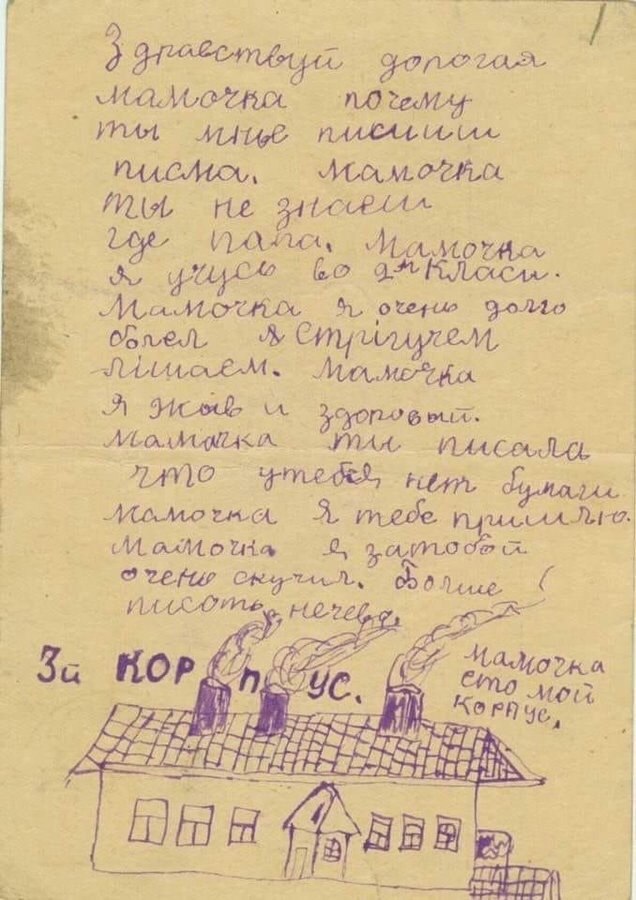 Здравствуй дорогая
мамочка почему
ты мнье писиш
писма. мамочка
ты не знаеш
где папа. Мамочка
я учусь во 2м класи.
Мамочка я очень долго
болел я Стрігучем
лішаем. мамочка
я жыв и здоровый.
мамочка ты писала
что утебя, нет бумаги
мамочка я тебе пришлю.
мамочка я затобой
очень скучил. Болше
писоть нечева.
3й КОРПУС.
мамочка
ето мой
корпус.